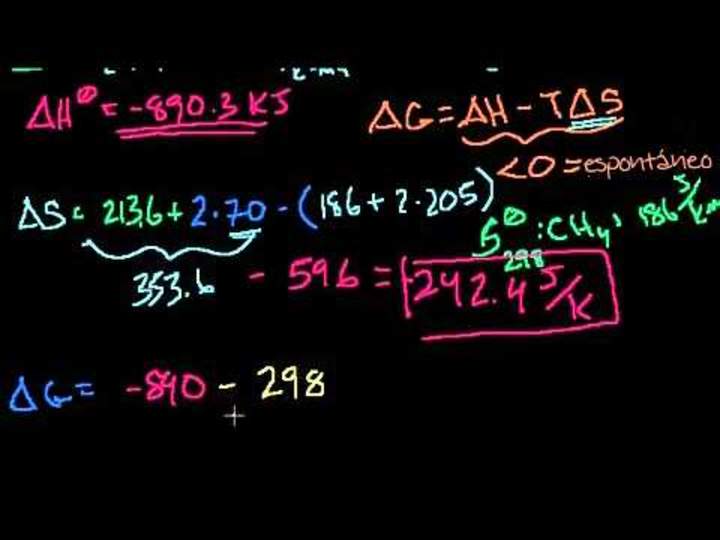 ΔH° = -890.3 KJ
ΔG = ΔH - TΔS
<0 = espontáneo
ΔS = 213.6 + 2·70 - (186 + 2·205)
S°298 : CH4: 186 J/K
353.6 - 596 = -242.4 J/K
ΔG = -890 - 298